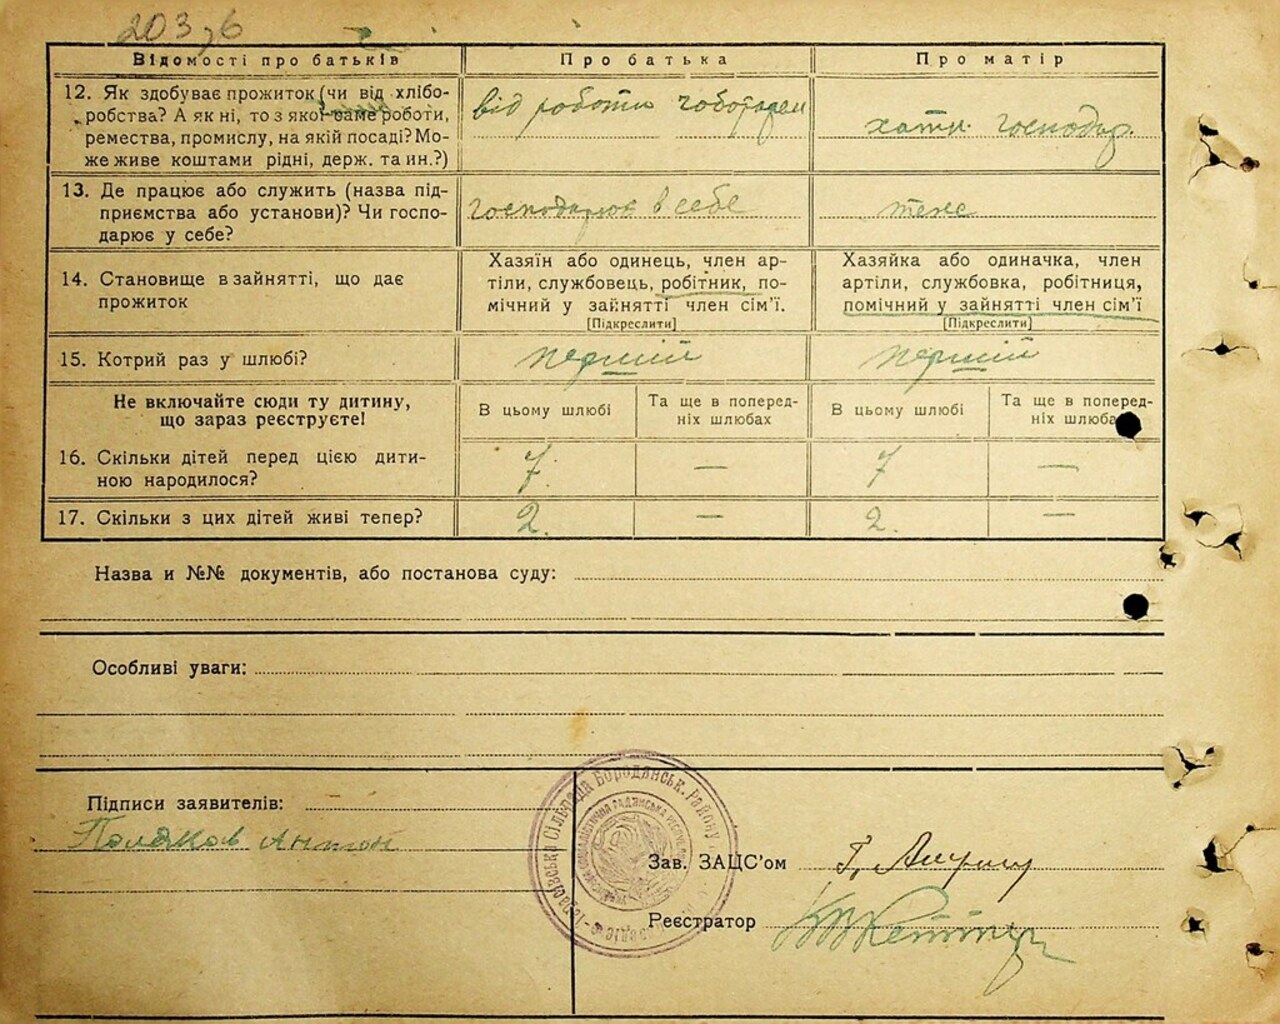 203,6
Відомості про батьків
Про батька
Про матір
12. Як здобуває прожиток (чи від хлібо-
робства? А як ні, то з якої саме роботи,
ремества, промислу, на якій посаді? Мо-
же живе коштами рідні, держ. та ин.?)
від роботи чоботарем
хатн. господар.
13. Де працює або служить (назва під-
приємства або установи)? Чи госпо-
дарює у себе?
господарює в себе
теж
14. Становище в зайнятті, що дає
прожиток
Хазяїн або одинець, член ар-
тіли, службовець, робітник, по-
мічний у зайнятті член сім'ї.
[Підкреслити]
Хазяйка або одиначка, член
артіли, службовка, робітниця,
помічний у зайнятті член сім'ї
[Підкреслити]
15. Котрий раз у шлюбі?
перший
перший
Не включайте сюди ту дитину,
що зараз реєструєте!
В цьому шлюбі
Та ще в поперед-
ніх шлюбах
В цьому шлюбі
Та ще в поперед-
ніх шлюба
16. Скільки дітей перед цією дити-
ною народилося?
7.
—
7
—
17. Скільки з цих дітей живі тепер?
2.
—
2.
—
Назва и №№ документів, або постанова суду:
Особливі уваги:
Підписи заявителів:
Поляков Антон
Сільрада Бородянськ. Району
Зав. ЗАЦС'ом
Реєстратор